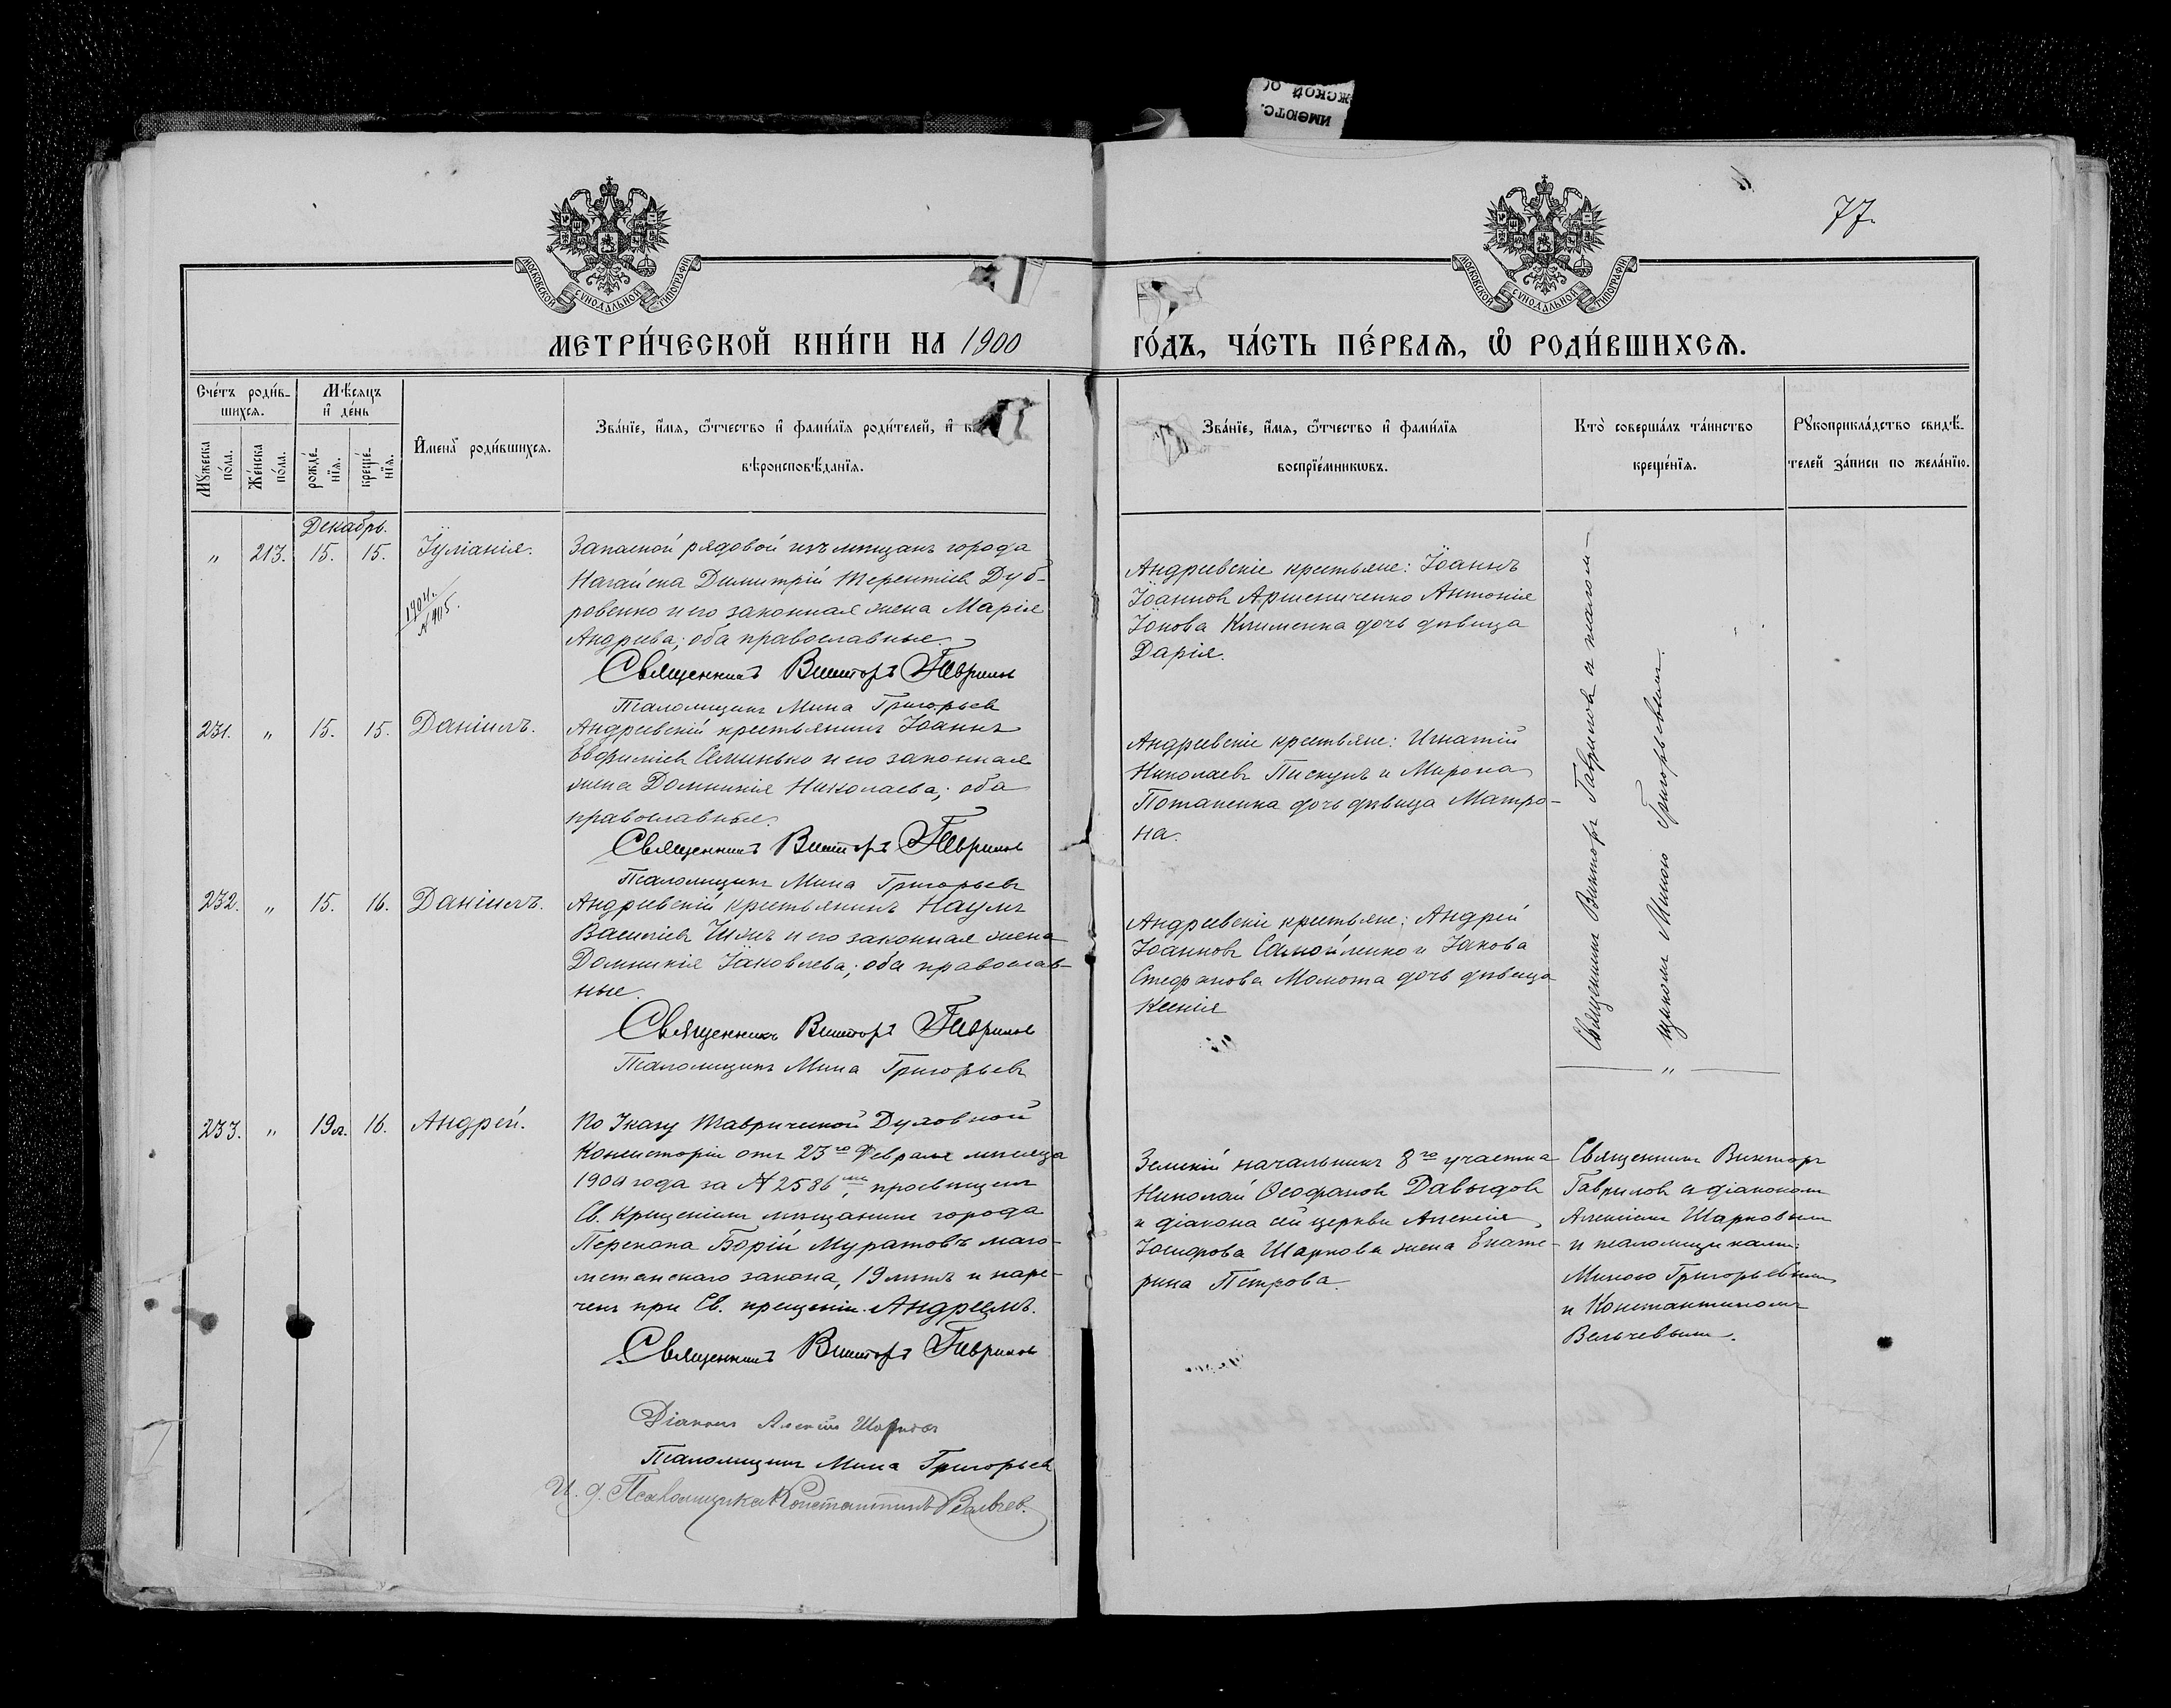 ИМЕЮТС.
ЖСКОЙ ОБ
77.
МОСКОВСКОЙ СѴНОДАЛЬНОЙ ТИПОГРАФІИ
МОСКОВСКОЙ СѴНОДАЛЬНОЙ ТИПОГРАФІИ
МЕТРИ́ЧЕСКОЙ КНИ́ГИ НА 1900
ГО́ДЪ, ЧА́СТЬ ПЕ́РВАѦ, Ѡ РОДИ́ВШИХСѦ.
Сче́тъ роди́в-
шихсѧ.
Мꙋ́жеска по́ла.
Же́нска по́ла.
Мѣ́сѧцъ
и҆ де́нь
рожде́-нїѧ.
креще́-нїѧ.
И҆мена̀ роди́вшихсѧ.
Зва́нїе, и҆́мѧ, ѻ҆́тчество и҆ фами́лїѧ роди́телей, и҆ к
вѣроисповѣ́данїѧ.
Зва́нїе, и҆́мѧ, ѻ҆́тчество и҆ фами́лїѧ
воспрїе́мникѡвъ.
Кто̀ соверша́лъ та́инство
креще́нїѧ.
Рꙋкоприкла́дство свидѣ́-
телей за́писи по жела́нїю.
Декабрь.
" 213. 15. 15. Іуліанія.
1904 г.
Запасной рядовой изъ мѣщанъ города
Ногайска Димитрій Терентіевъ Дуб-
ровенко и его законная жена Марія
Андреева; оба православные.
Священникъ Викторъ Гавриловъ
Псаломщикъ Мина Григорьевъ
Андреевскіе крестьяне: Іоаннъ
Іоанновъ Аршениченко Антонія
Іонова Клименка дочь дѣвица
Дарія.
231. " 15. 15. Даніилъ.
Андреевскій крестьянинъ Іоаннъ
Евфиміевъ Семинько и его законная
жена Домникія Николаева; оба
православные.
Священникъ Викторъ Гавриловъ
Псаломщикъ Мина Григорьевъ
Андреевскіе крестьяне: Игнатій
Николаевъ Пискунъ и Мирона
Потапенка дочь дѣвица Матро-
на.
232. " 15. 16. Даніилъ.
Андреевскій крестьянинъ Наумъ
Василіевъ и его законная жена
Домникія Іаковлева; оба православ-
ные.
Священникъ Викторъ Гавриловъ
Псаломщикъ Мина Григорьевъ
Андреевскіе крестьяне: Андрей
Іоанновъ Самойленко и Іакова
Стефанова Момота дочь дѣвица
Ксенія
Священникъ Викторъ Гавриловъ съ псалом-
щикомъ Миною Григорьевымъ.
"
233. " 19 л. 16. Андрей.
По Указу Таврической Духовной
Консисторіи отъ 23го Февраля мѣсяца
1900 года за № 2586мъ, просвѣщенъ
Св. Крещеніемъ мѣщанинъ города
Перекопа Борій Муратовъ маго-
метанскаго закона, 19 лѣтъ и наре-
ченъ при Св. крещеніи Андреемъ.
Священникъ Викторъ Гавриловъ
Діаконъ Алексій Шарковъ
Псаломщикъ Мина Григорьевъ
И. д. Псаломщика Константинъ Вальчев.
Земскій начальникъ 8го участка
Николай Ѳеофановъ Давыдовъ
и діакона сей церкви Алексія
Іосифова Шаркова жена Екате-
рина Петрова.
Священникъ Викторъ
Гавриловъ съ діакономъ
Алексіемъ Шарковымъ
и псаломщиками:
Миною Григорьевымъ
и Константиномъ
Вальчевымъ.